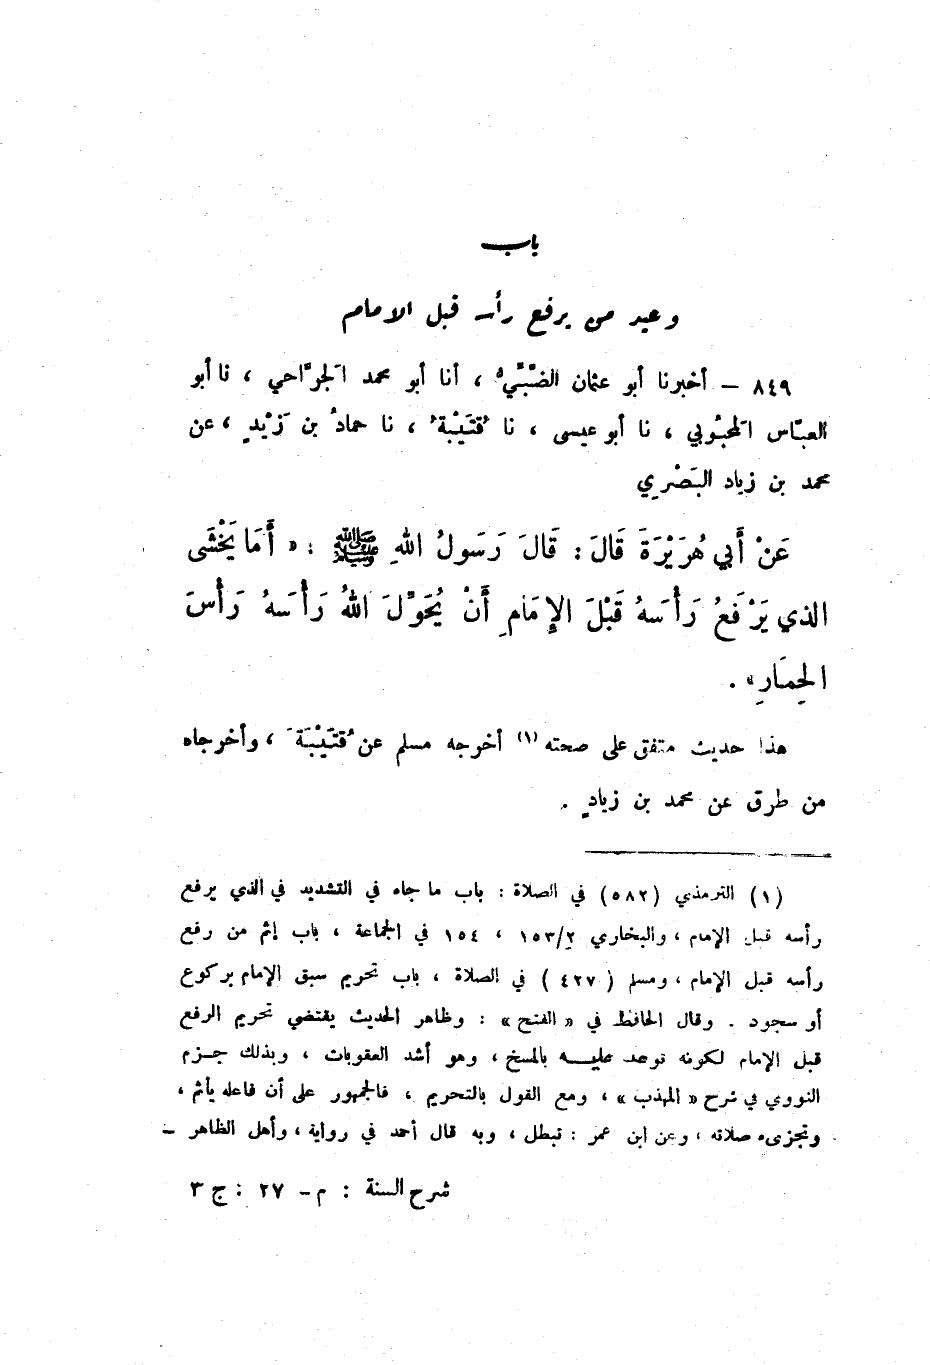 باب
وعيد من يرفع رأسه قبل الامام
٨٤٩ – أخبرنا أبو عثمان الضَّبِّيُّ ، أنا أبو محمد الجَرَّاحي ، نا أبو
العبّاس المَحبُوبي ، نا أبو عيسى ، نا قُتَيْبةُ ، نا حمادُ بن زَيْدٍ ، عن
محمد بن زياد البَصْرِي
عَنْ أَبي هُرَيْرَةَ قَالَ : قَالَ رَسولُ اللهِ ﷺ : « أَمَا يَخْشَى
الذي يَرْفَعُ رَأْسَهُ قَبْلَ الإِمَامِ أَنْ يُحَوِّلَ اللهُ رَأْسَهُ رَأْسَ
الحِمَارِ » .
هذا حديث متفق على صحته (١) أخرجه مسلم عن قُتَيْبَةَ ، وأخرجاه
من طرق عن محمد بن زيادٍ .
(١) الترمذي (٥٨٢) في الصلاة : باب ما جاء في التشديد في الذي يرفع
رأسه قبل الإمام ، والبخاري ١٥٣/٢ ، ١٥٤ في الجماعة ، باب إثم من رفع
رأسه قبل الإمام ، ومسلم ( ٤٢٧ ) في الصلاة ، باب تحريم سبق الإمام بركوع
أو سجود . وقال الحافظ في « الفتح » : وظاهر الحديث يقتضي تحريم الرفع
قبل الإمام لكونه توعد عليه بالمسخ ، وهو أشد العقوبات ، وبذلك جزم
النووي في شرح « المهذب » ، ومع القول بالتحريم ، فالجمهور على أن فاعله يأثم ،
وتجزىء صلاته ، وعن ابن عمر : تبطل ، وبه قال أحمد في رواية ، وأهل الظاهر –
شرح السنة : م – ٢٧ : ج ٣